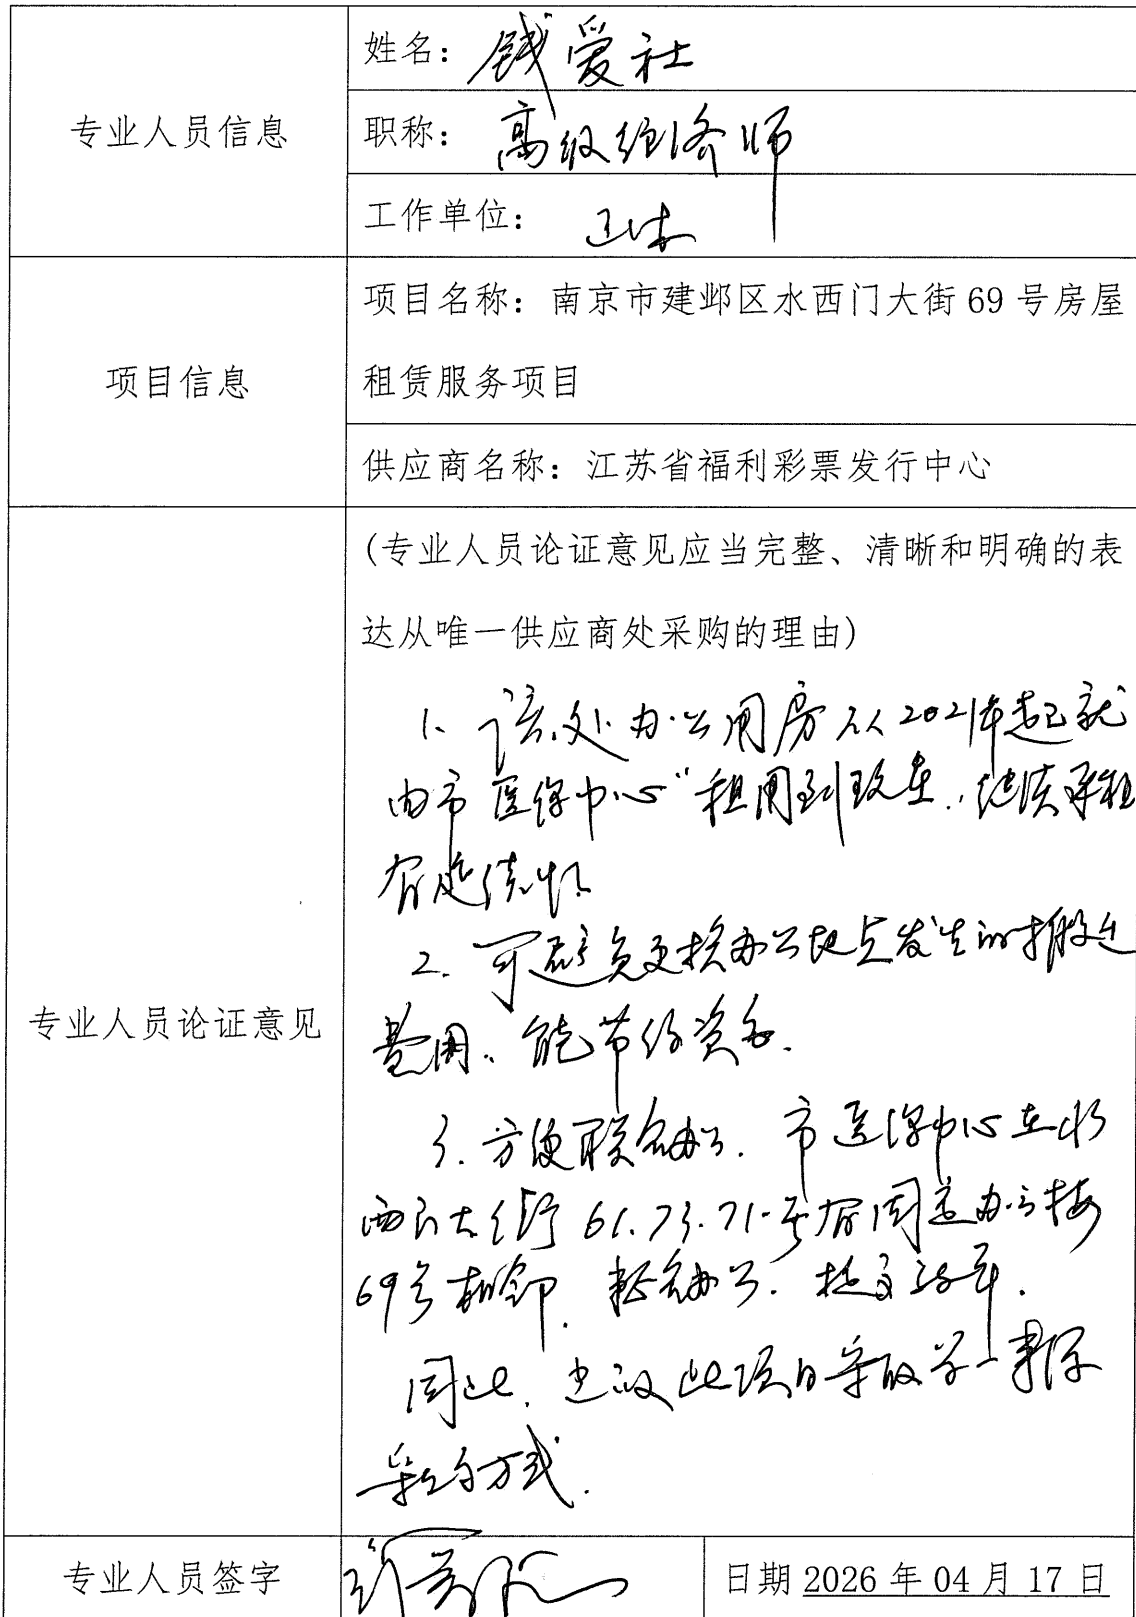 专业人员信息
姓名：钱爱社
职称：高级经济师
工作单位：退休
项目信息
项目名称：南京市建邺区水西门大街 69 号房屋
租赁服务项目
供应商名称：江苏省福利彩票发行中心
专业人员论证意见
（专业人员论证意见应当完整、清晰和明确的表
达从唯一供应商处采购的理由）
1、该处办公用房从2021年起就
由市医保中心“租用到现在，继续承租
有延续性
2. 可避免更换办公地点发生的搬迁
费用，能节约资金.
3. 方便联合办公. 市医保中心在水
西门大街 61.73.71号有固定办公楼
69号相邻, 联合办公. 提高效率.
因此, 建议此项目采取单一来源
采购方式.
专业人员签字
日期 2026 年 04 月 17 日